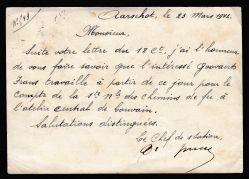 Aarschot, le 23 Mars 1942.
Monsieur,
Suite votre lettre des 18 Ct, j'ai l'honneur
de vous faire savoir que l'intéressé Govaert
Frans travaille à partir de ce jour pour le
compte de la Sté Nle des chemins de fer à
l'atelier central de Louvain.
Salutations distinguées.
Le Chef de station,